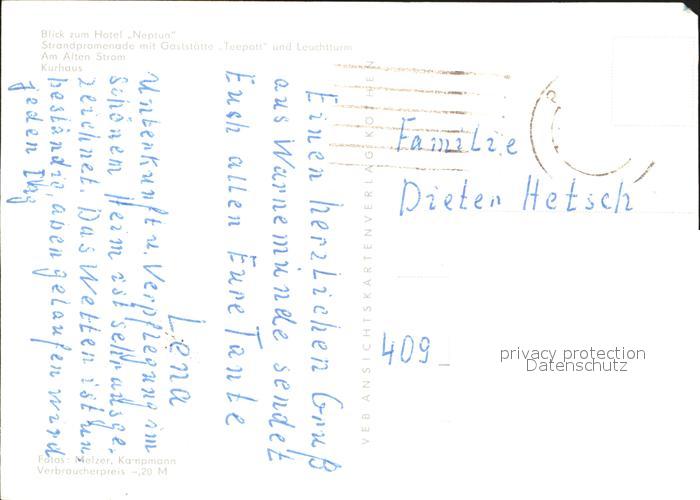 Blick zum Hotel „Neptun"
Strandpromenade mit Gaststätte „Teepott" und Leuchtturm
Am Alten Strom
Kurhaus
Einen herzlichen Gruß
aus Warnemünde sendet
Euch allen Eure Tante
Lena
Unterkunft u. Verpflegung im
schönen Heim ist sehr ausge-
zeichnet. Das Wetter ist un
beständig, aber gelaufen wird
jeden Tag
VEB ANSICHTSKARTENVERLAG KÖTHEN
Familie
Dieter Hetsch
409
privacy protection
Datenschutz
Fotos: Melzer, Kampmann
Verbraucherpreis –,20 M